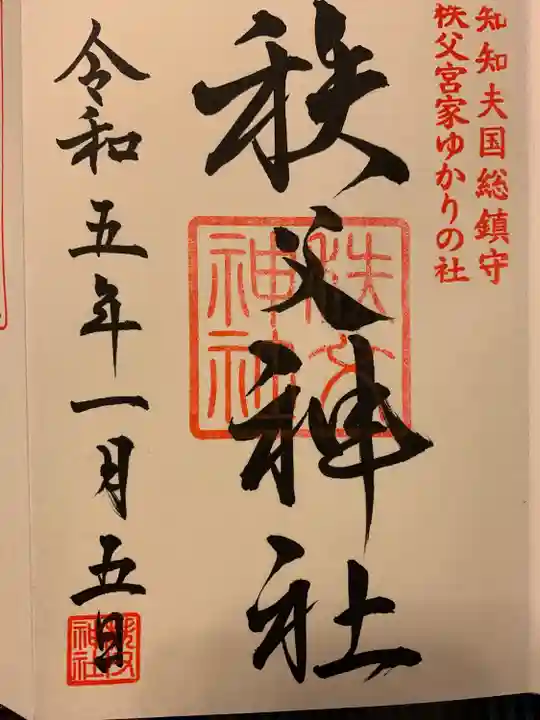 知知夫国総鎮守
秩父宮家ゆかりの社
秩父神社
秩父神社
令和五年一月五日
秩父神社